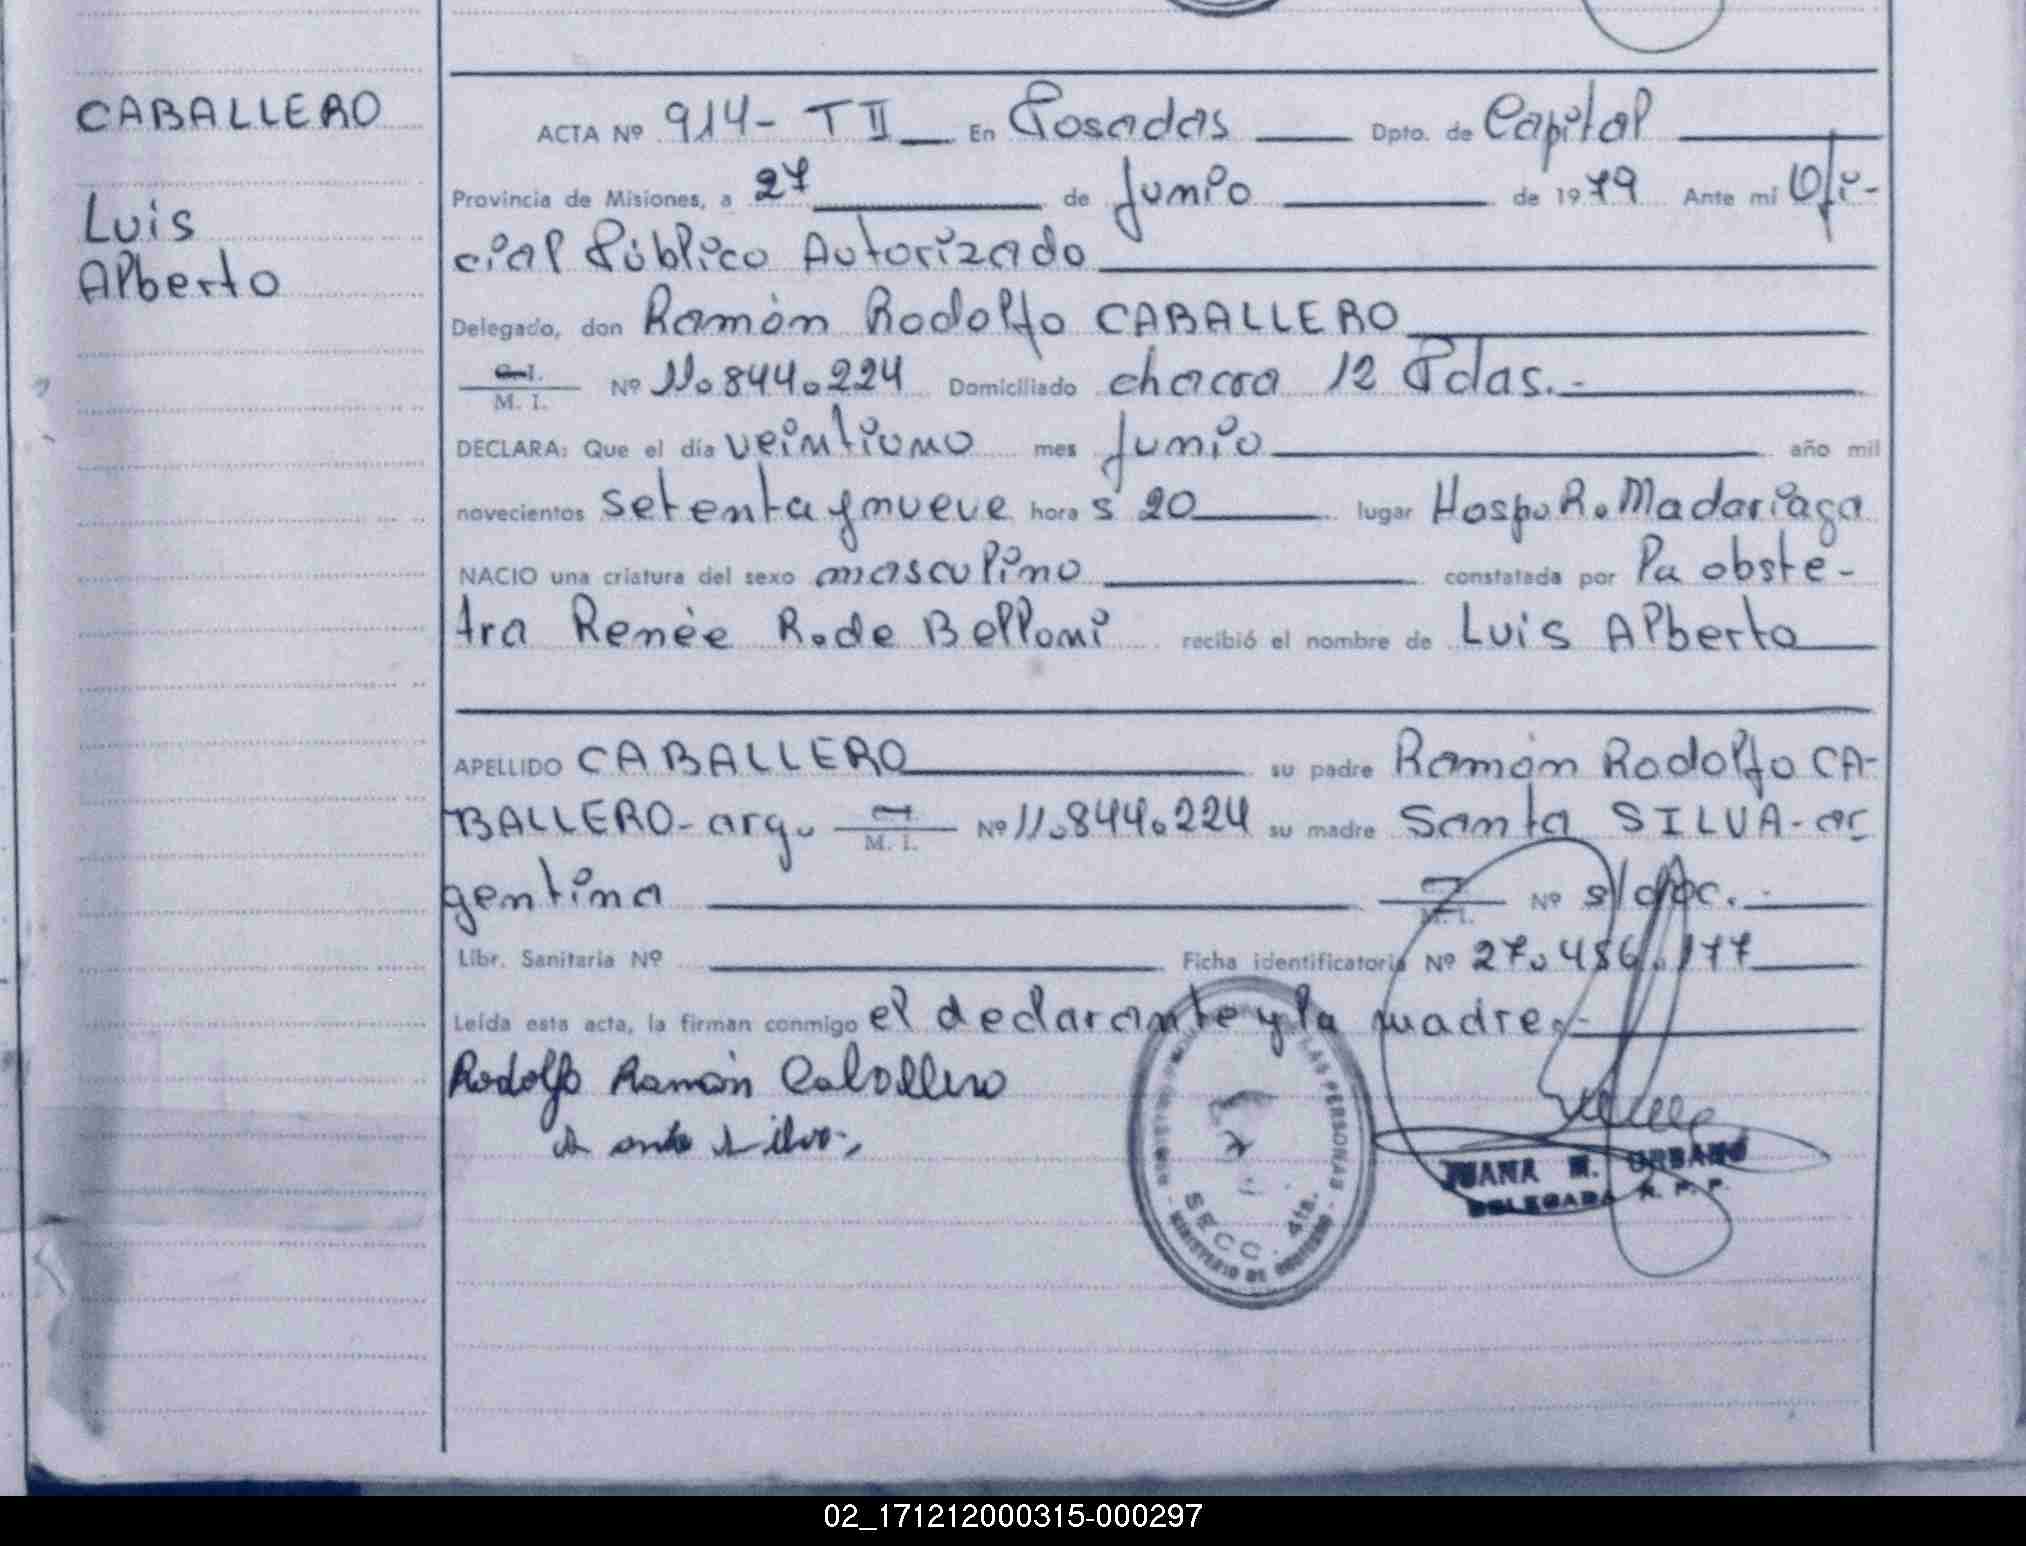 CABALLERO
Luis
Alberto
ACTA Nº 914- T II En Posadas Dpto. de Capital
Provincia de Misiones, a 27 de Junio de 1979 Ante mi Ofi-
cial Público Autorizado
Delegado, don Ramón Rodolfo CABALLERO
C. I.
M. I. Nº 11.844.224 Domiciliado chacra 12 Pdas.-
DECLARA: Que el día veintiuno mes Junio año mil
novecientos setenta y nueve hora s 20 lugar Hosp. R. Madariaga
NACIO una criatura del sexo masculino constatada por la obste-
tra Renée R. de Belloni recibió el nombre de Luis Alberto
APELLIDO CABALLERO su padre Ramón Rodolfo CA-
BALLERO- arg. M. I. Nº 11.844.224 su madre Santa SILVA- ar
gentina M. I. Nº s/doc.-
Libr. Sanitaria Nº Ficha identificatoria Nº 27.486.177
Leída esta acta, la firman conmigo el declarante y la madre.-
Rodolfo Ramón Caballero
Santa Silva
LAS PERSONAS
SECC. 4ta.
MINISTERIO DE GOBIERNO
JUANA URBANO
DELEGADA R. P. P.
02_171212000315-000297